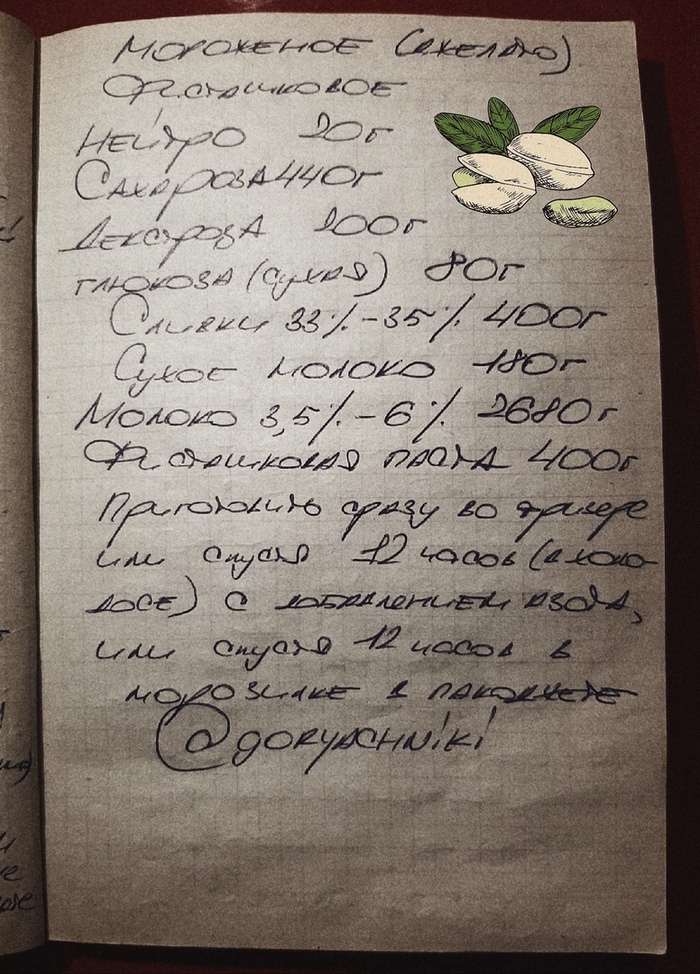 Мороженое (джелато)
Фисташковое
Нейтро 20г
Сахароза 440г
Декстроза 200г
глюкоза (сухая) 80г
Сливки 33%-35% 400г
Сухое молоко 180г
Молоко 3,5%-6% 2680г
Фисташковая паста 400г
Приготовить сразу во фризере
или спустя 12 часов (в холо-
досе) с добавлением азота,
или спустя 12 часов в
морозилке в пакоджете
@goryachniki